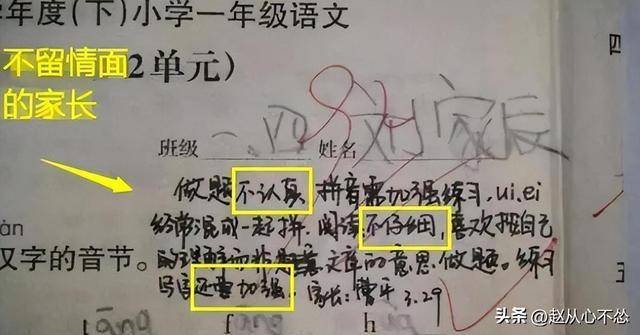 学年度(下)小学一年级语文
不留情面
的家长
2单元)
班级 一.四 姓名 刘家辰
做题不认真 拼音需加强练习, ui.ei
经常混成一起拼. 阅读不仔细, 喜欢把自己
的理解而非题意文章的意思做题。练习
写还要加强. 家长: 曹平 3.29
àn
汉字的音节。
tāng fāng hu
四
头条 @赵从心不怂